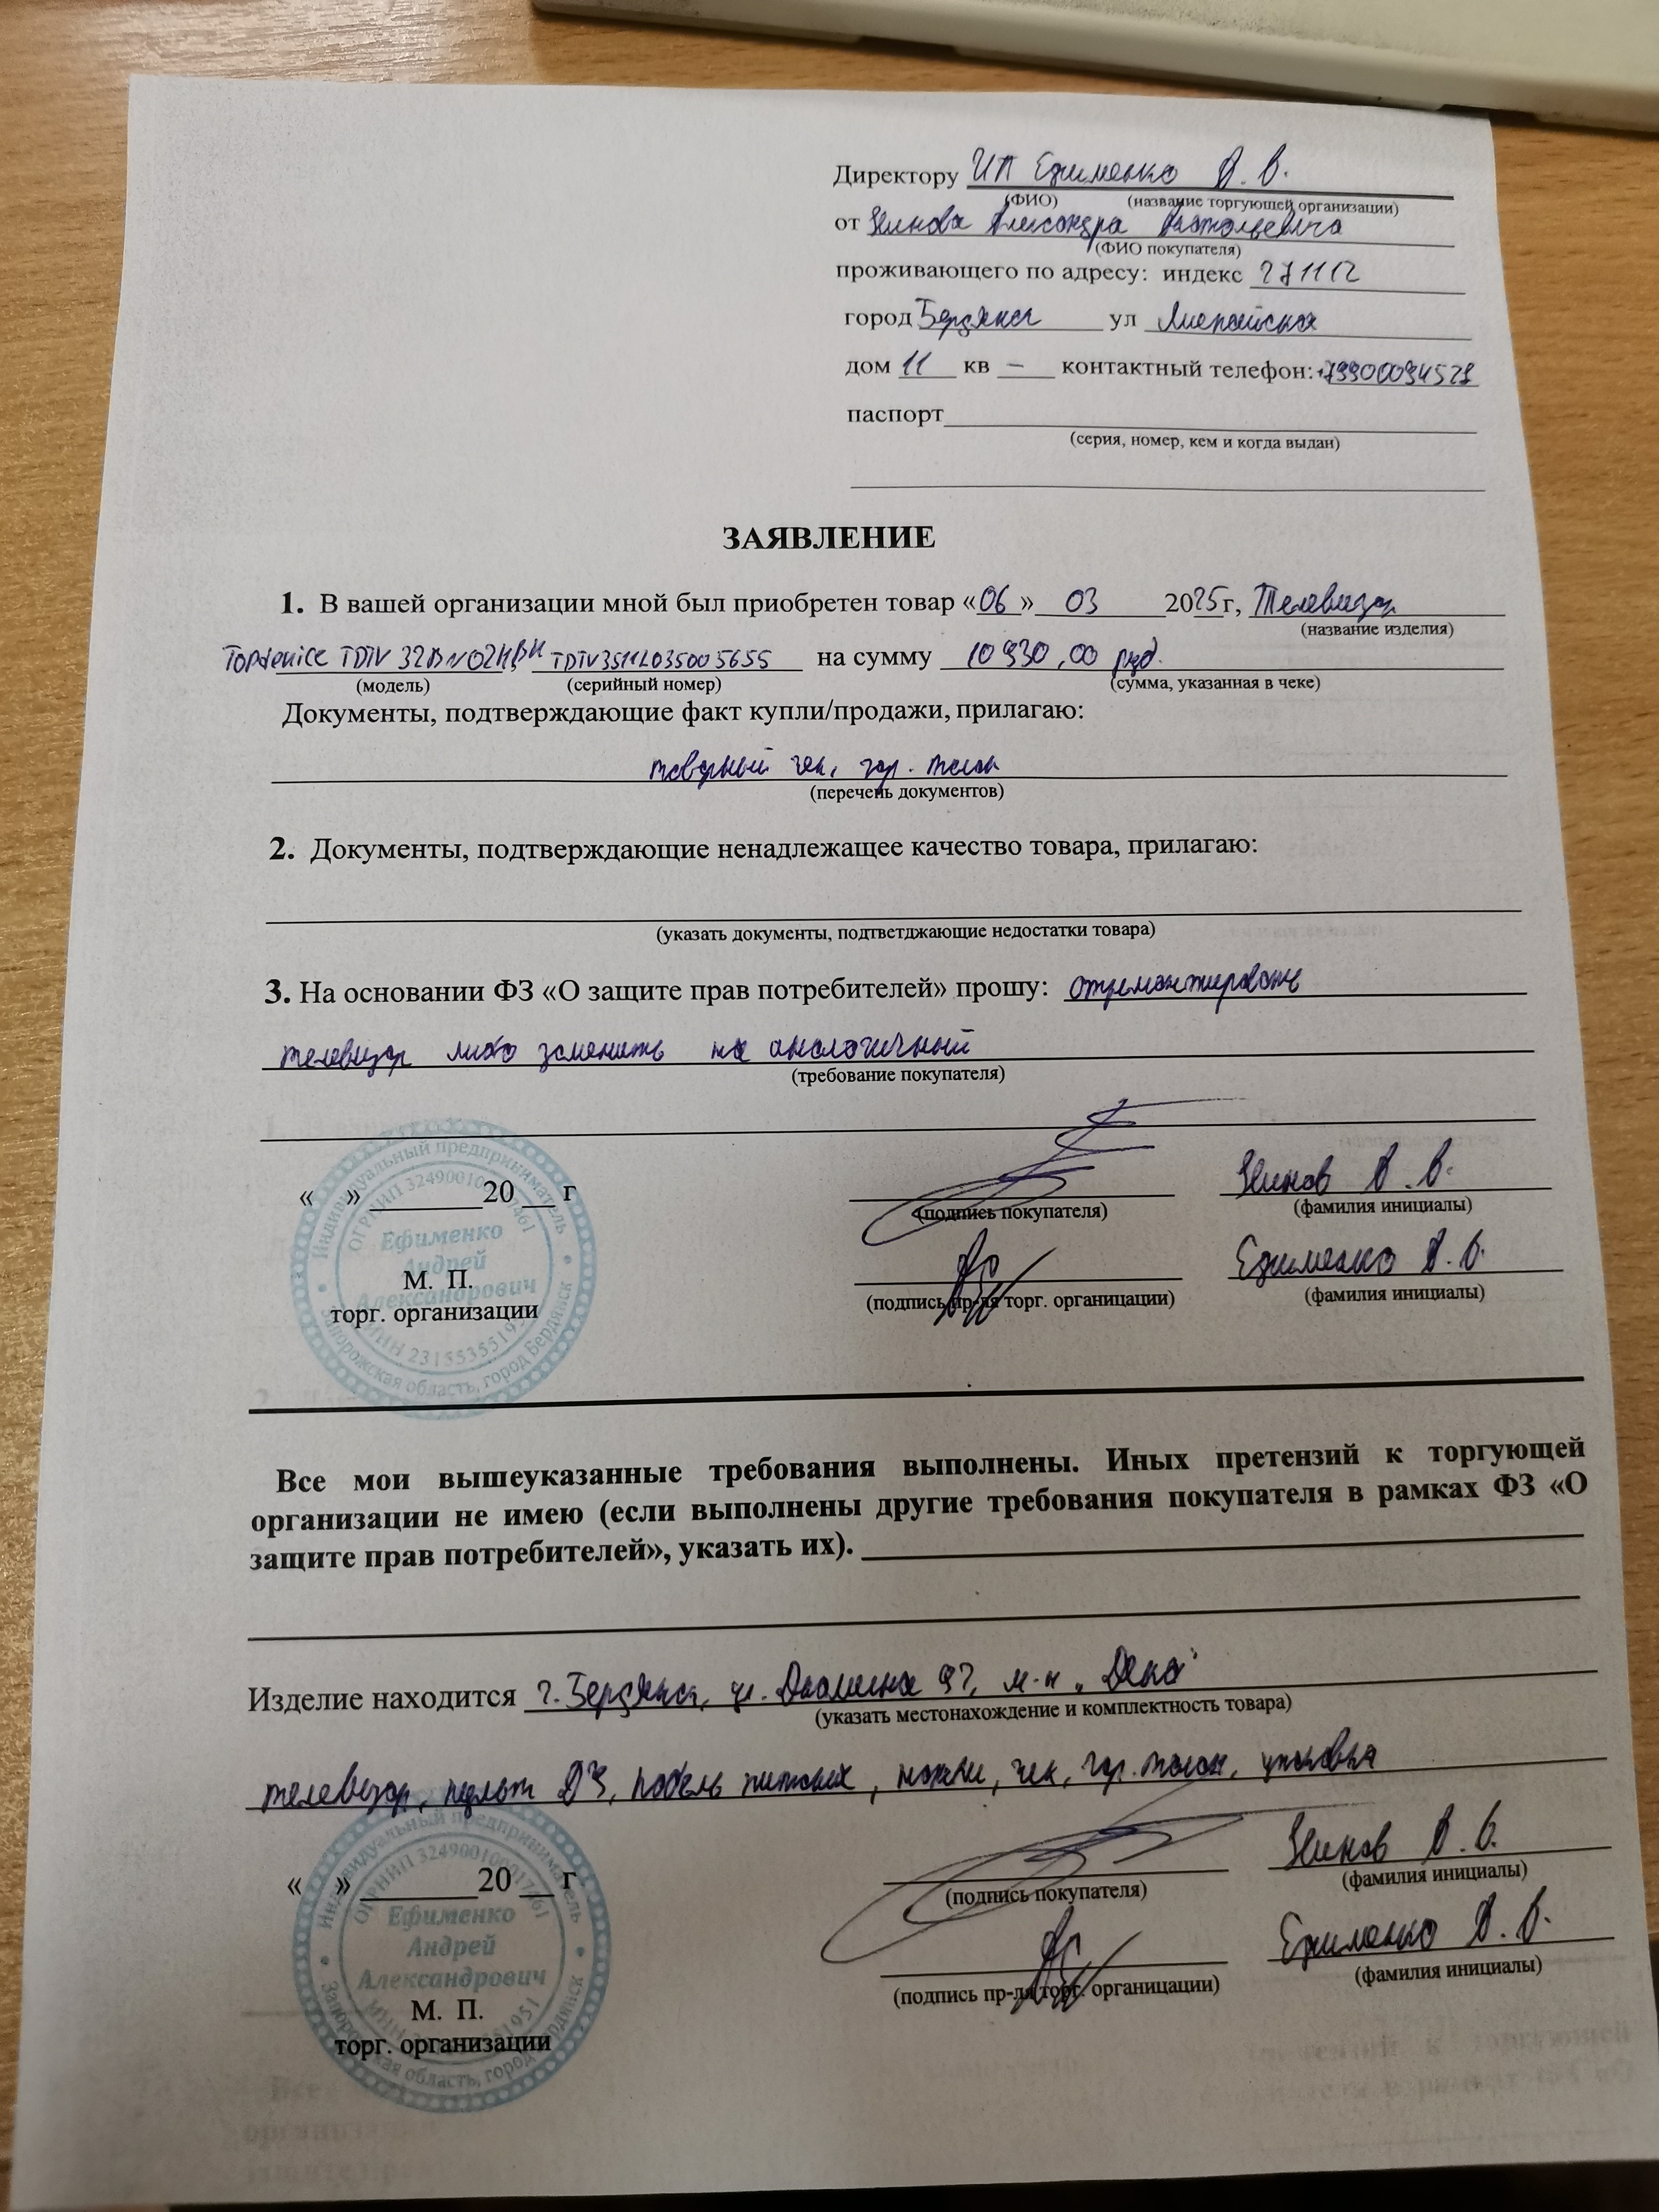 Директору ИП Ефименко А. А.
(ФИО) (название торгующей организации)
от Зинова Александра Анатольевича
(ФИО покупателя)
проживающего по адресу: индекс 271112
город Бердянск ул Лиепайская
дом 11 кв – контактный телефон: +79900094521
паспорт
(серия, номер, кем и когда выдан)
ЗАЯВЛЕНИЕ
1. В вашей организации мной был приобретен товар «06» 03 2025г, Телевизор
(название изделия)
Topdevice TDTV 32BN02H BK TDTV3511L035005655 на сумму 10 930,00 руб.
(модель) (серийный номер) (сумма, указанная в чеке)
Документы, подтверждающие факт купли/продажи, прилагаю:
товарный чек, гар. талон
(перечень документов)
2. Документы, подтверждающие ненадлежащее качество товара, прилагаю:
(указать документы, подтветджающие недостатки товара)
3. На основании ФЗ «О защите прав потребителей» прошу: отремонтировать
телевизор либо заменить на аналогичный
(требование покупателя)
« » 20 г Зинов А. А.
(подпись покупателя) (фамилия инициалы)
Ефименко А. А.
М. П.
торг. организации (подпись пр-ля торг. органицации) (фамилия инициалы)
Индивидуальный предприниматель
Ефименко
Андрей
Александрович
Запорожская область, город Бердянск
Все мои вышеуказанные требования выполнены. Иных претензий к торгующей
организации не имею (если выполнены другие требования покупателя в рамках ФЗ «О
защите прав потребителей», указать их).
Изделие находится г. Бердянск, ул. 97, м-н „Дека"
(указать местонахождение и комплектность товара)
телевизор, пульт ДУ, кабель питания, ножки, чек, гар. талон, упаковка
« » 20 г Зинов А. А.
(подпись покупателя) (фамилия инициалы)
Ефименко А. А.
М. П.
торг. организации (подпись пр-ля торг. органицации) (фамилия инициалы)
Индивидуальный предприниматель
Ефименко
Андрей
Александрович
Запорожская область, город Бердянск